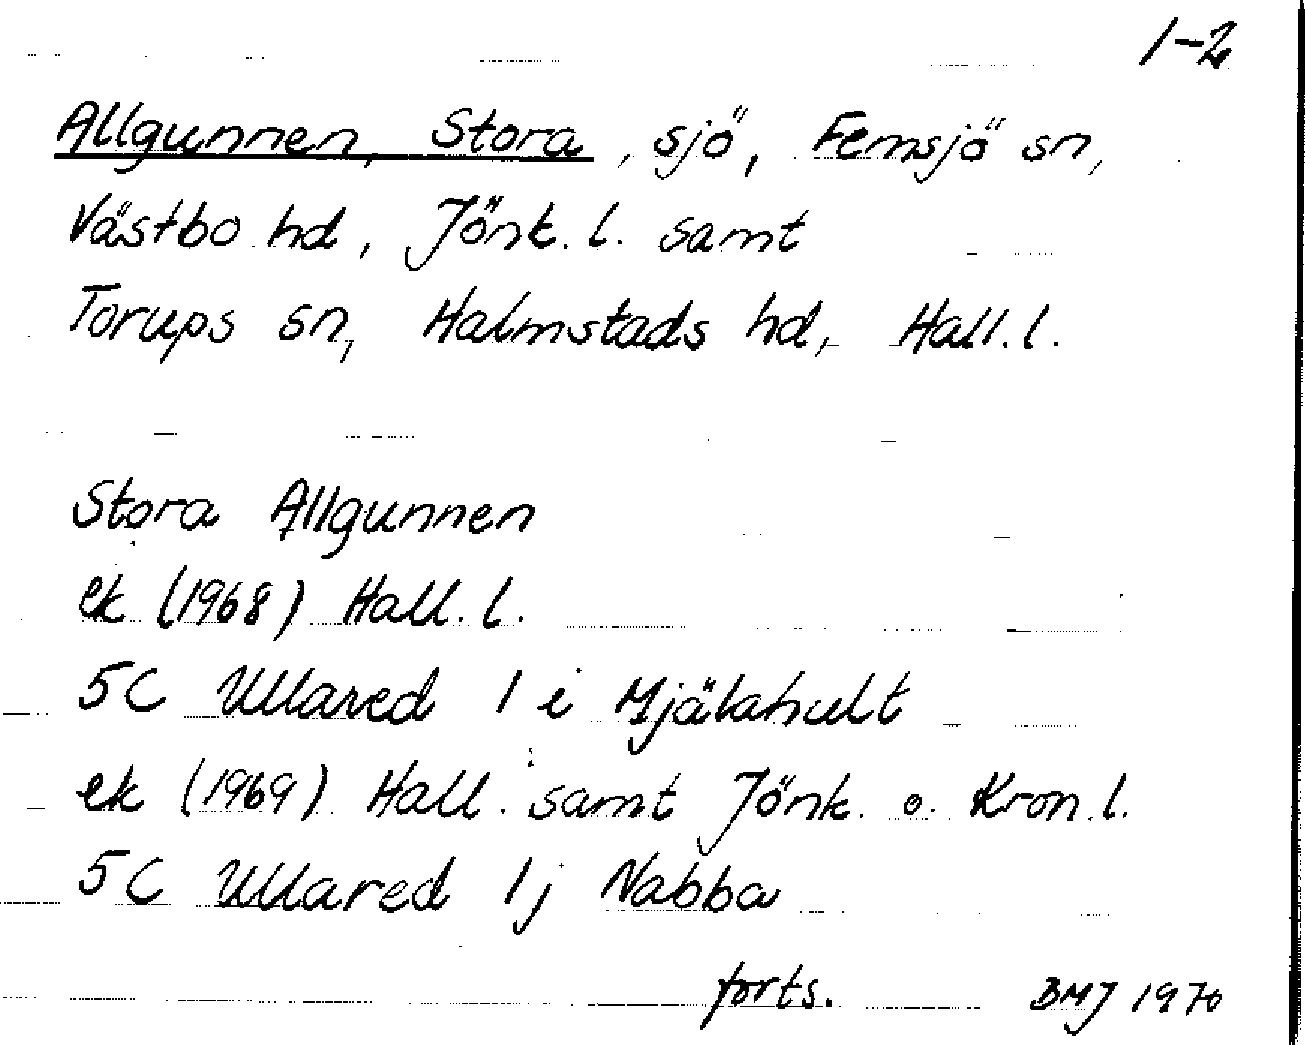 1-2
Allgunnen, Stora, sjö, Femsjö sn,
Västbo hd, Jönk. l. samt
Torups sn, Halmstads hd, Hall. l.
Stora Allgunnen
ek (1968) Hall. l.
5C Ullared 1 i Mjälahult
ek (1969) Hall. samt Jönk. o. Kron. l.
5C Ullared 1j Nabba
forts. BMJ 1970